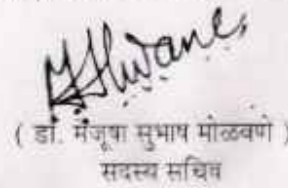 ( डॉ. मंजूषा सुभाष मोळवणे )
सदस्य सचिव